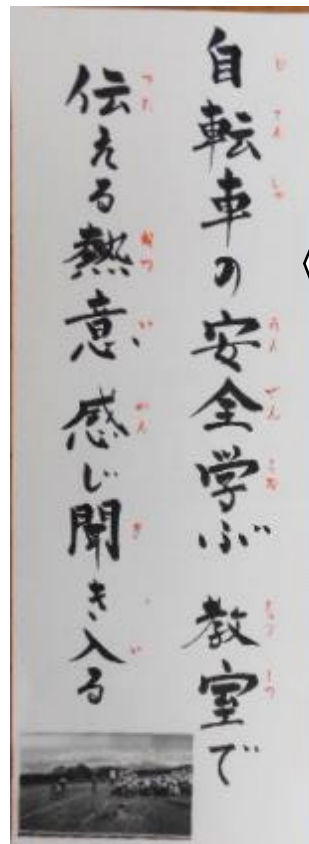 自転車の安全学ぶ 教室で
伝える熱意 感じ聞き入る